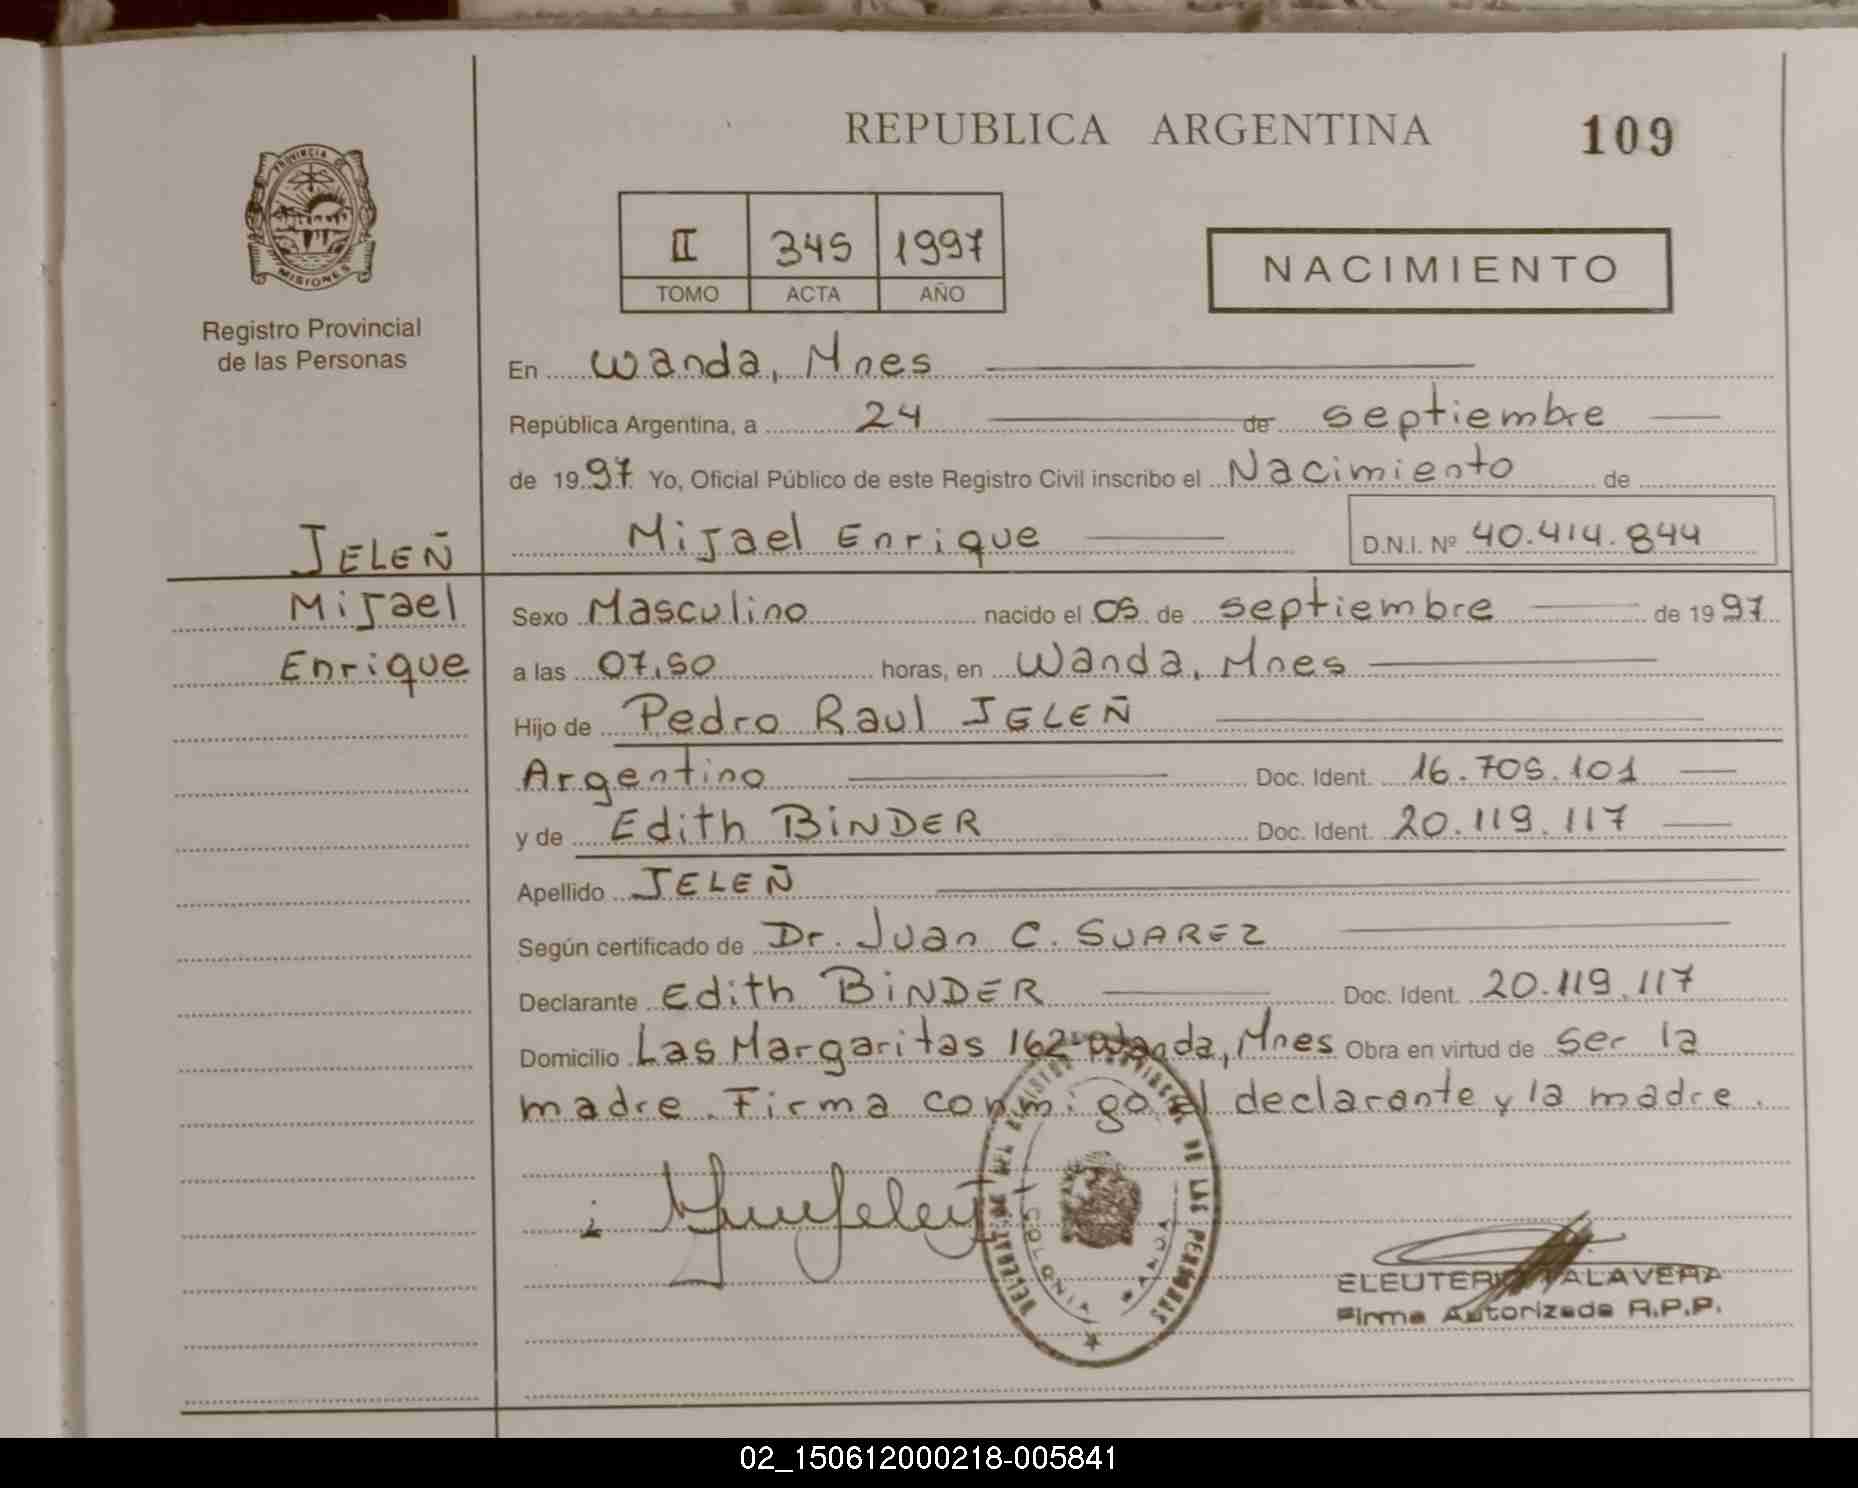 REPUBLICA ARGENTINA
109
PROVINCIA DE MISIONES
Registro Provincial
de las Personas
II 345 1997
TOMO ACTA AÑO
NACIMIENTO
En Wanda, Mnes
República Argentina, a 24 de septiembre
de 1997 Yo, Oficial Público de este Registro Civil inscribo el Nacimiento de
Mijael Enrique D.N.I. Nº 40.414.844
JELEÑ
Mijael
Enrique
Sexo Masculino nacido el 05 de septiembre de 1997
a las 07,50 horas, en Wanda, Mnes
Hijo de Pedro Raul JELEÑ
Argentino Doc. Ident. 16.705.101
y de Edith BINDER Doc. Ident. 20.119.117
Apellido JELEÑ
Según certificado de Dr. Juan C. SUAREZ
Declarante Edith BINDER Doc. Ident. 20.119.117
Domicilio Las Margaritas 162 Wanda, Mnes Obra en virtud de ser la
madre. Firma conmigo el declarante y la madre.
DEL REGISTRO PROVINCIAL DE LAS PERSONAS
COLONIA WANDA
ELEUTERIO TALAVERA
Firma Autorizada R.P.P.
02_150612000218-005841